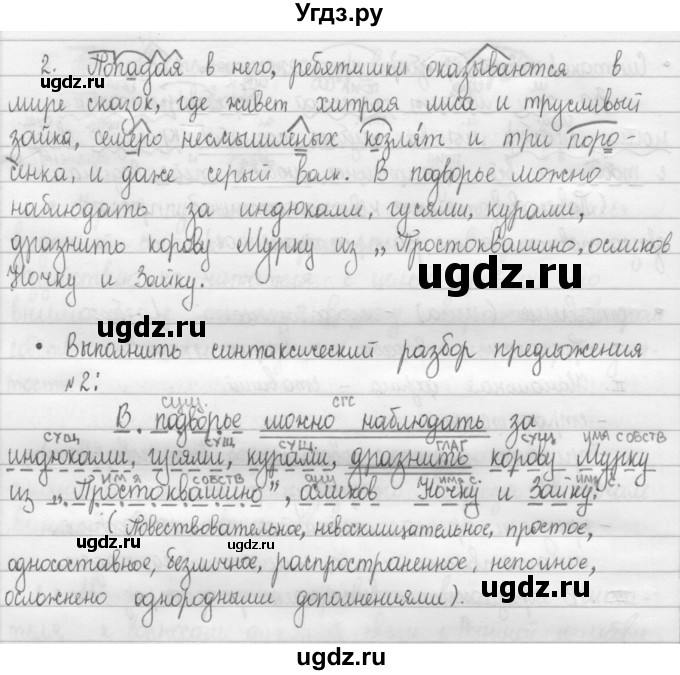 Угдз.ру
2. Попадая в него, ребятишки оказываются в
мире сказок, где живет хитрая лиса и трусливый
зайка, семеро несмышленых козлят и три поро-
сёнка, и даже серый волк. В подворье можно
наблюдать за индюками, гусями, курами,
дразнить корову Мурку из „Простоквашино, осликов
Ночку и Зайку.
• Выполнить синтаксический разбор предложения
№2:
сущ. СГС
В подворье можно наблюдать за
сущ сущ сущ. ГЛАГ сущ. имя собств
индюками, гусями, курами, дразнить корову Мурку
имя собств имя с. имя с.
из „Простоквашино", осликов Ночку и Зайку.
(Повествовательное, невосклицательное, простое,
односоставное, безличное, распространенное, неполное,
осложнено однородными дополнениями).
ugdz.ru
ugdz.ru
ugdz.ru
ugdz.ru
ugdz.ru
ugdz.ru
ugdz.ru
ugdz.ru
ugdz.ru